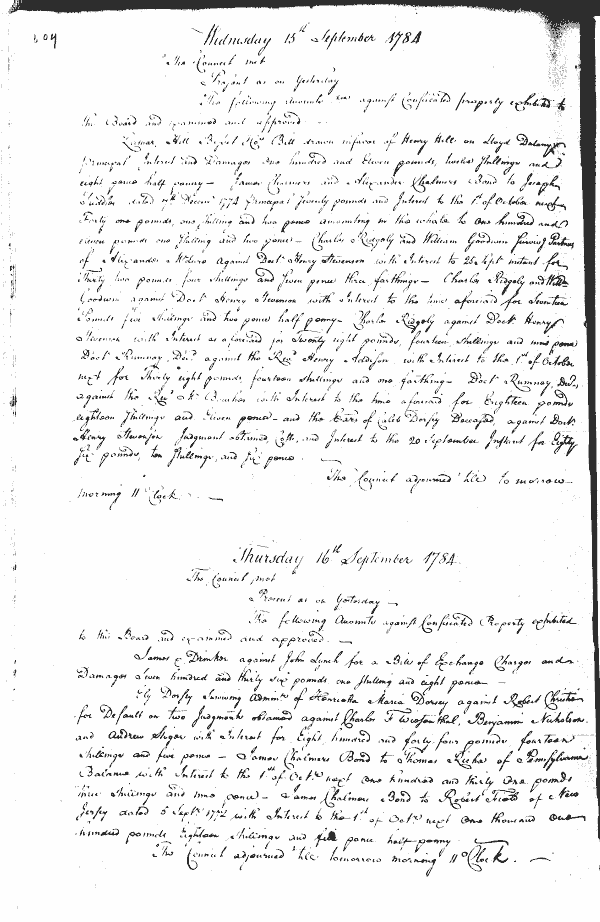 Wednesday 15th September 1784
The Council met
Present as on Yesterday
The following Accounts against Confiscated property exhibited to
the Board and examined and approved.
Hill Bill drawn in favor of Henry Hill on Lloyd Dulany
principal Interest and Damages one hundred and Eleven pounds, twelve Shillings and
eight pence half penny – James Chalmers and Alexander Chalmers Bond to Joseph
dated Decemr. 1774 principal Twenty pounds and Interest to the 1st. of October next
Forty one pounds, one shilling and two pence amounting in the whole to One hundred and
eleven pounds one Shilling and two pence – Charles Ridgely and William Goodwin Surviving Partners
of Alexander against Doctr. Henry Stevenson with Interest to 25 Sept instant for
Thirty two pounds four Shillings and seven pence three farthings – Charles Ridgely and Willm.
Goodwin against Doctr. Henry Stevenson with Interest to the time aforesaid for Seventeen
Pounds five Shillings and two pence half penny – Charles Ridgely against Doctr. Henry
Stevenson with Interest as aforesaid for Twenty eight pounds, fourteen Shillings and nine pence
Doctr. Rumney, against the Revd. Henry Addison, with Interest to the 1st. of October
next for Thirty eight pounds fourteen Shillings and one farthing – Doctr. Rumney,
against the Revd. Mr. Boucher with Interest to the time aforesaid for Eighteen pounds
eighteen Shillings and Eleven pence – and the Exrs. of Caleb Dorsey Deceased, against Doctr.
Henry Stevenson Judgment obtained, Costs, and Interest to the 20 September Instant for Eighty
Six pounds, ten Shillings, and Six pence.
The Council adjourned till to morrow
morning 11 oClock.
Thursday 16th September 1784
The Council met
Present as on Yesterday
The following Accounts against Confiscated Property exhibited
to this Board and examined and approved.
James & Drinker against John Lynch for a Bill of Exchange Charges and
Damages Seven hundred and thirty six pounds one shilling and eight pence
Ely Dorsey Surviving Adminr. of Henrietta Maria Dorsey against Robert Christie
for Default on two Judgments obtained against Charles F Wiesenthal, Benjamin Nicholson
and Andrew with Interest for Eight hundred and forty four pounds fourteen
Shillings and five pence – James Chalmers Bond to Thomas of Pennsylvania
Balance with Interest to the 1st. of Octr. next one hundred and thirty one pounds
nine Shillings and nine pence – James Chalmers Bond to Robert of New
Jersey dated 5 Septr. 1772 with Interest to the 1st of Octr. next One thousand one
hundred pounds Eighteen Shillings and five pence half penny.
The Council adjourned till tomorrow morning 11 oClock.